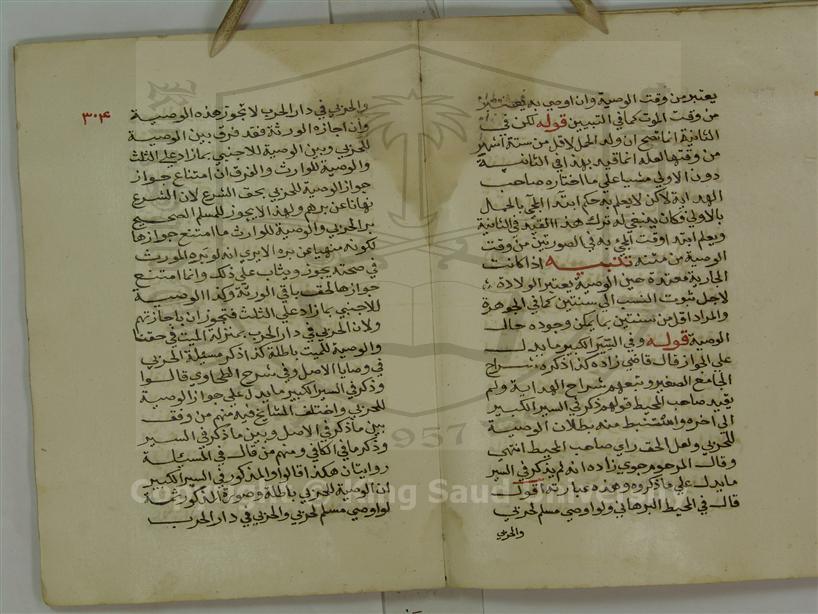 يعتبر من وقت الوصية وان اوصى به يعتبر
من وقت الموت كما في التبيين قوله لكن في
الثانية انما تصح ان ولد لاقل من ستة اشهر
من وقتها لعله انما قيد بهذا في الثانية
دون الاولى مشيا على ما اختاره صاحب
الهداية لكن لا يعلم به حكم ابتداء المجي بالحمل
بالاولى وكان ينبغي له ترك هذا القيد في الثانية
ويعلم ابتداء وقت المجي به في الصورتين من وقت
الوصية من متنه تنبيه اذا كانت
الجارية معتدة حين الوصية يعتبر الولادة
لاجل ثبوت النسب الى سنتين كما في الجوهرة
والمراد اقل من سنتين بما يمكن وجوده حال
الوصية قوله وفي السير الكبير ما يدل
على الجواز قال قاضي زاده كذا ذكره شراح
الجامع الصغير وتبعهم شراح الهداية ولم
يقيد صاحب المحيط قولهم ذكر في السير الكبير
الى اخره واستنبط منه بطلان الوصية
للحربي ولعل الحق راي صاحب المحيط انتهى
وقال المرحوم جوي زاده انه لم يذكر في السير
ما يدل على ما ذكروه وهذه عبارته اقول
قال في المحيط البرهاني ولو اوصى مسلم لحربي
والحربي
٣٠٤
والحربي في دار الحرب لا تجوز هذه الوصية
وان اجازه الورثة فقد فرق بين الوصية
للحربي وبين الوصية للاجنبي بما زاد على الثلث
والوصية للوارث والفرق ان امتناع جواز
جواز الوصية للحربي بحق الشرع لان الشرع
نهانا عن برهم ولهذا لا يجوز للمسلم الصحيح
بر الحربي والوصية للوارث ما امتنع جوازها
لكونه منهيا عن بره الا يرى انه لو بره المورث
في صحته يجوز ويثاب على ذلك وانما امتنع
جوازها لحق باقي الورثة وكذا الوصية
للاجنبي بما زاد على الثلث فتجوز ان باجازتهم
ولان الحربي في دار الحرب بمنزلة الميت في حقنا
والوصية للميت باطلة كذا ذكر مسئلة الحربي
في وصايا الاصل وفي شرح الطحاوي قالوا
وذكر في السير الكبير ما يدل على جواز الوصية
للحربي واختلف المشايخ فيه منهم من وفق
بين ما ذكر في الاصل وبين ما ذكر في السير
وذكر ما في الكافي ومنهم من قال في المسئلة
روايتان هكذا قالوا والمذكور في السير الكبير
ان الوصية للحربي باطلة وصورة المذكور ثمة
لو اوصى مسلم لحربي والحربي في دار الحرب
Copyright © King Saud University
1957